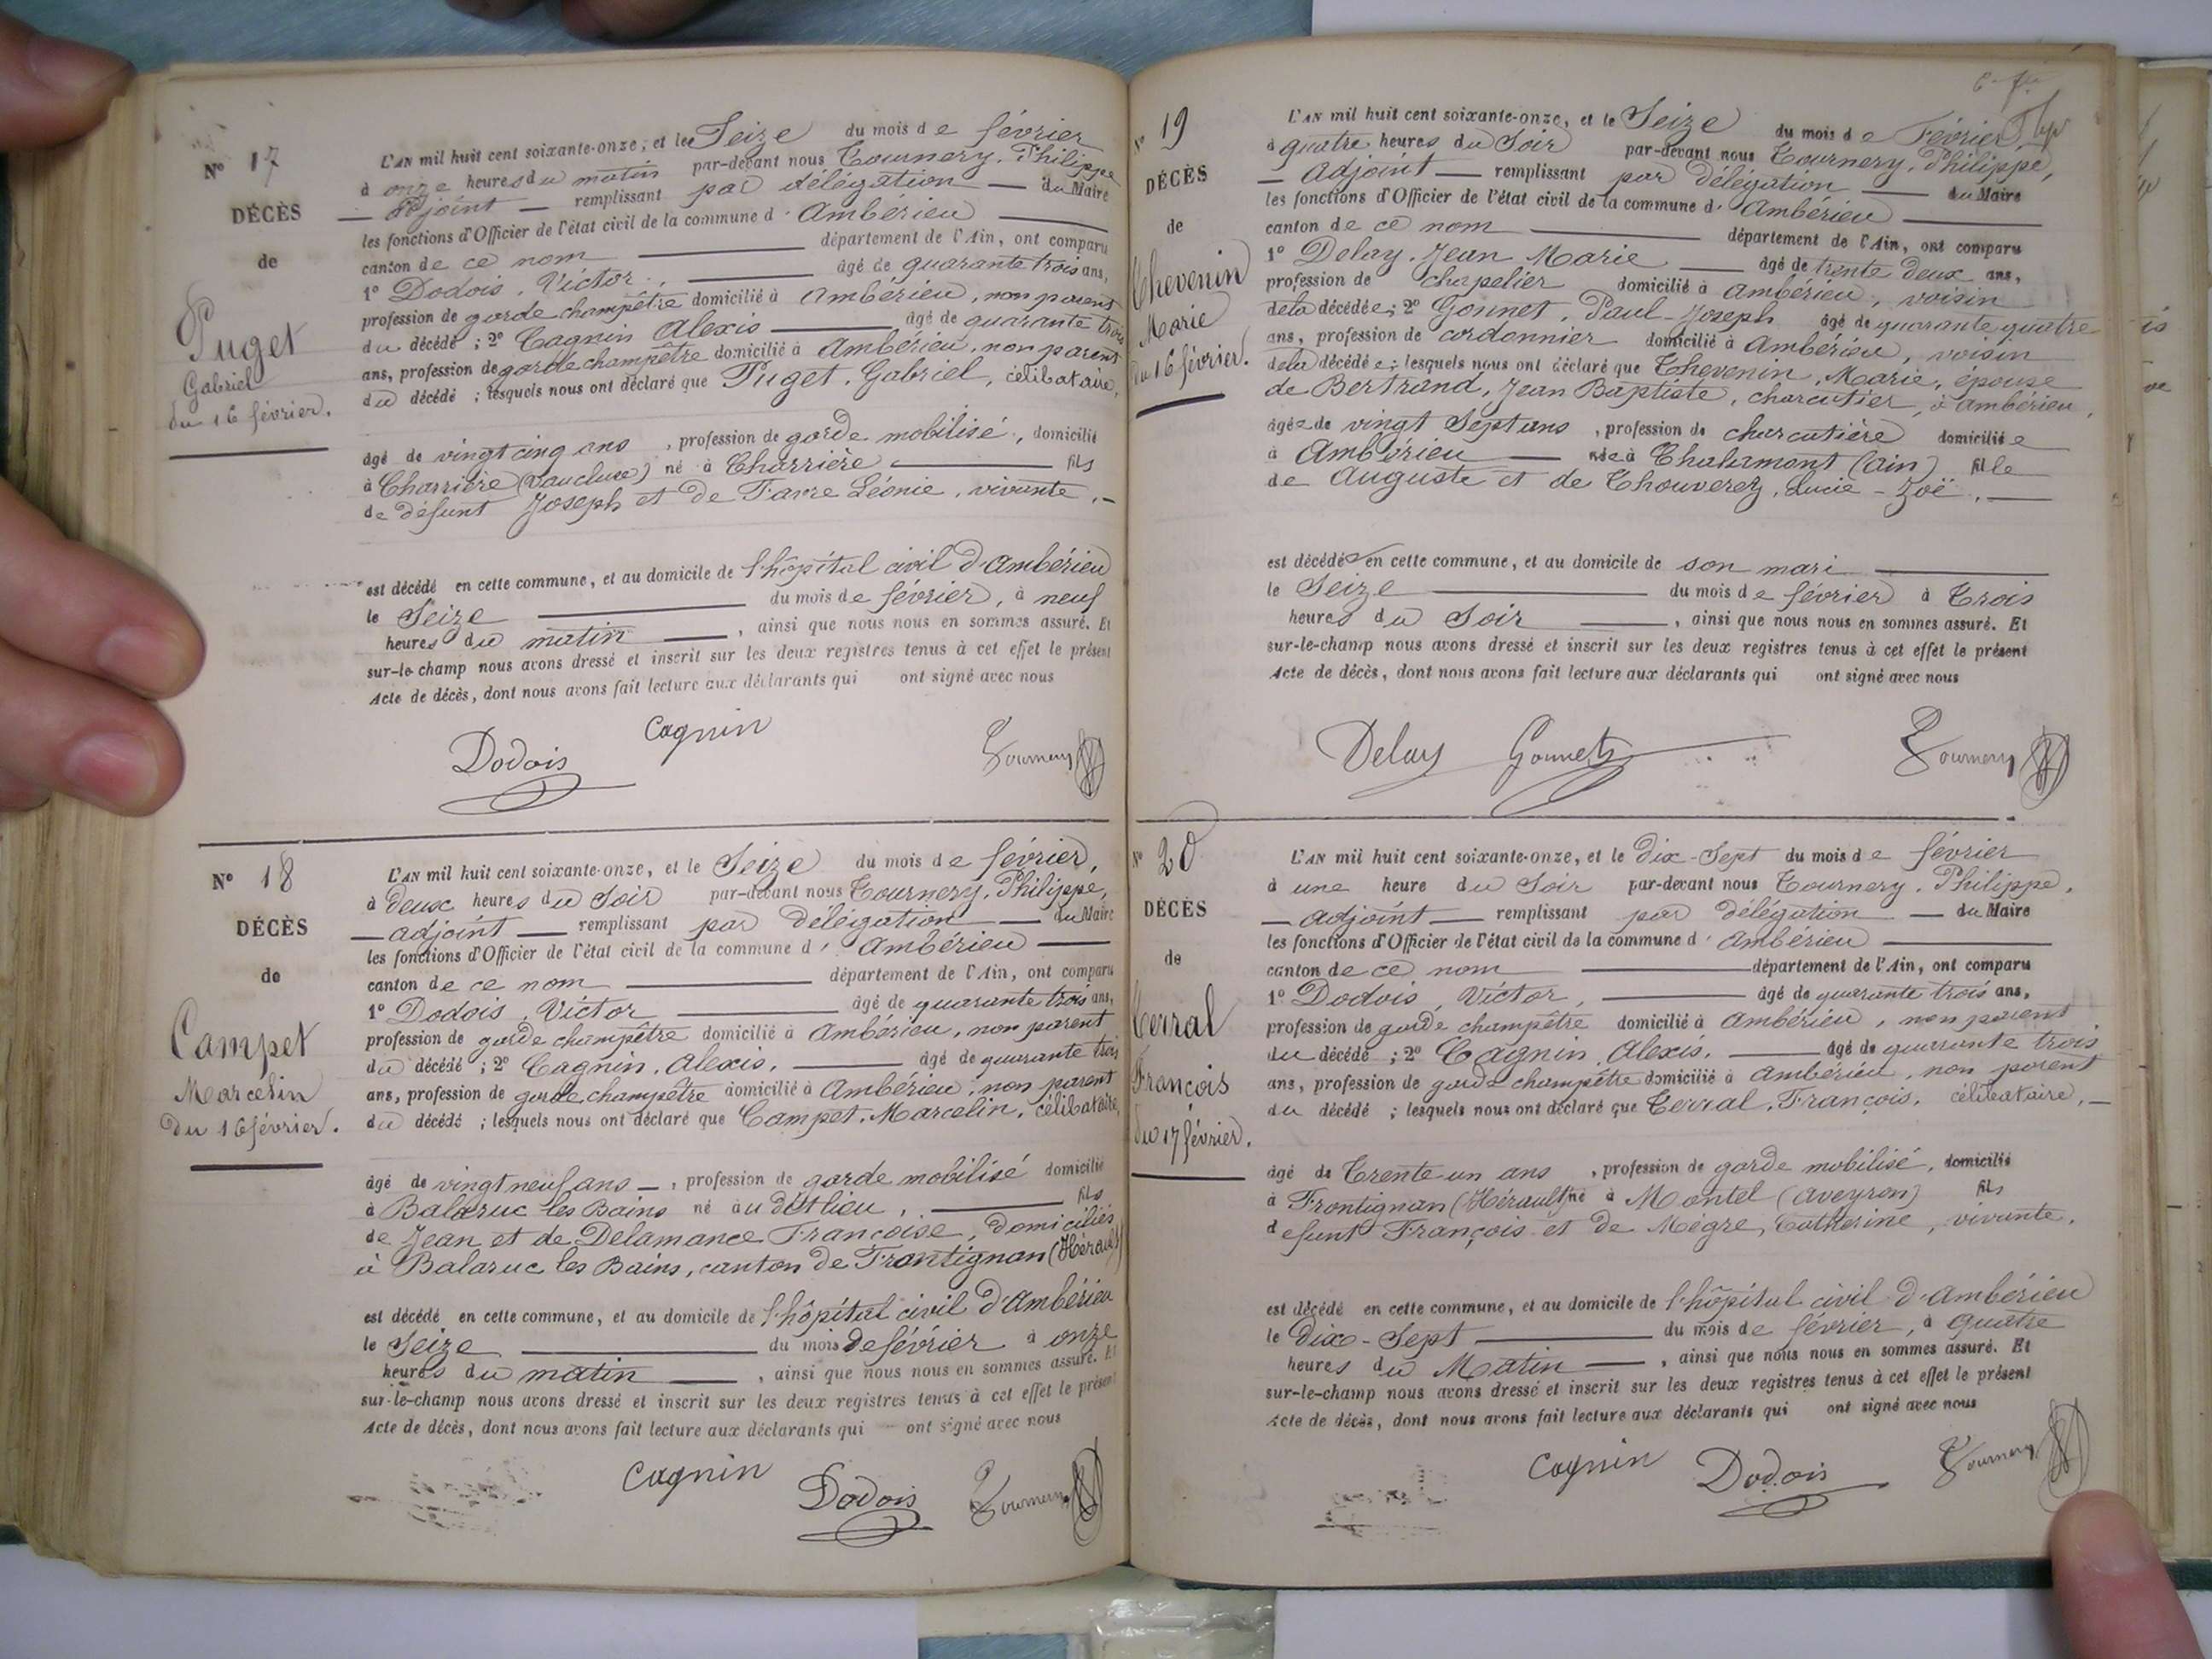 N° 17
DÉCÈS
de
Puget
Gabriel
du 16 février.
L'AN mil huit cent soixante-onze, et le Seize du mois de février
à onze heures du matin par-devant nous Tournery, Philippe
— Adjoint — remplissant par délégation — du Maire
les fonctions d'Officier de l'état civil de la commune d'Ambérieu
canton de ce nom département de l'Ain, ont comparu
1° Dodois, Victor, âgé de quarante trois ans,
profession de garde champêtre domicilié à Ambérieu, non parent
du décédé ; 2° Cagnin Alexis âgé de quarante trois
ans, profession de garde champêtre domicilié à Ambérieu, non parent
du décédé ; lesquels nous ont déclaré que Puget, Gabriel, célibataire,
âgé de vingt cinq ans, profession de garde mobilisé, domicilié
à Charrière (Vaucluse) né à Charrière fils
de défunt Joseph et de Favre Léonie, vivante, —
est décédé en cette commune, et au domicile de l'hôpital civil d'Ambérieu
le Seize du mois de février, à neuf
heures du matin, ainsi que nous nous en sommes assuré. Et
sur-le-champ nous avons dressé et inscrit sur les deux registres tenus à cet effet le présent
Acte de décès, dont nous avons fait lecture aux déclarants qui ont signé avec nous
Cagnin
Dodois Tournery
N° 18
DÉCÈS
de
Campet
Marcelin
du 16 février.
L'AN mil huit cent soixante-onze, et le Seize du mois de février,
à deux heures du Soir par-devant nous Tournery, Philippe,
— adjoint — remplissant par délégation — du Maire
les fonctions d'Officier de l'état civil de la commune d'Ambérieu
canton de ce nom département de l'Ain, ont comparu
1° Dodois, Victor, âgé de quarante trois ans,
profession de garde champêtre domicilié à Ambérieu, non parent
du décédé ; 2° Cagnin, Alexis, âgé de quarante trois
ans, profession de garde champêtre domicilié à Ambérieu, non parent
du décédé ; lesquels nous ont déclaré que Campet, Marcelin, célibataire,
âgé de vingt neuf ans —, profession de garde mobilisé domicilié
à Balaruc les Bains né au dit lieu, fils
de Jean et de Delamance Françoise, domiciliés
à Balaruc les Bains, canton de Frontignan (Hérault)
est décédé en cette commune, et au domicile de l'hôpital civil d'Ambérieu
le Seize du mois de février à onze
heures du matin, ainsi que nous nous en sommes assuré. Et
sur-le-champ nous avons dressé et inscrit sur les deux registres tenus à cet effet le présent
Acte de décès, dont nous avons fait lecture aux déclarants qui ont signé avec nous
Cagnin Dodois Tournery
N° 19
DÉCÈS
de
Thevenin
Marie
du 16 février.
L'AN mil huit cent soixante-onze, et le Seize du mois de Février
à quatre heures du Soir par-devant nous Tournery, Philippe,
— Adjoint — remplissant par délégation — du Maire
les fonctions d'Officier de l'état civil de la commune d'Ambérieu
canton de ce nom département de l'Ain, ont comparu
1° Delay, Jean Marie âgé de trente deux ans,
profession de chapelier domicilié à Ambérieu, voisin
de la décédée ; 2° Gonnet, Paul-Joseph âgé de quarante quatre
ans, profession de cordonnier domicilié à Ambérieu, voisin
de la décédée ; lesquels nous ont déclaré que Thevenin, Marie, épouse
de Bertrand, Jean Baptiste, charcutier, à Ambérieu,
âgée de vingt Sept ans, profession de charcutière domiciliée
à Ambérieu — née à Chalamont (Ain) fille
de Auguste et de Thouverez, Lucie-Zoë, —
est décédée en cette commune, et au domicile de son mari
le Seize du mois de février à Trois
heures du Soir, ainsi que nous nous en sommes assuré. Et
sur-le-champ nous avons dressé et inscrit sur les deux registres tenus à cet effet le présent
Acte de décès, dont nous avons fait lecture aux déclarants qui ont signé avec nous
Delay Gonnet Tournery
N° 20
DÉCÈS
de
Terral
François
du 17 février.
L'AN mil huit cent soixante-onze, et le Dix-Sept du mois de février
à une heure du Soir par-devant nous Tournery, Philippe,
— adjoint — remplissant par délégation — du Maire
les fonctions d'Officier de l'état civil de la commune d'Ambérieu
canton de ce nom département de l'Ain, ont comparu
1° Dodois, Victor, âgé de quarante trois ans,
profession de garde champêtre domicilié à Ambérieu, non parent
du décédé ; 2° Cagnin, Alexis, âgé de quarante trois
ans, profession de garde champêtre domicilié à Ambérieu, non parent
du décédé ; lesquels nous ont déclaré que Terral, François, célibataire, —
âgé de Trente un ans, profession de garde mobilisé, domicilié
à Frontignan (Hérault) né à Montel (Aveyron) fils
defunt François et de Mégre, Catherine, vivante,
est décédé en cette commune, et au domicile de l'hôpital civil d'Ambérieu
le Dix-Sept du mois de février, à Quatre
heures du Matin, ainsi que nous nous en sommes assuré. Et
sur-le-champ nous avons dressé et inscrit sur les deux registres tenus à cet effet le présent
Acte de décès, dont nous avons fait lecture aux déclarants qui ont signé avec nous
Cagnin Dodois Tournery